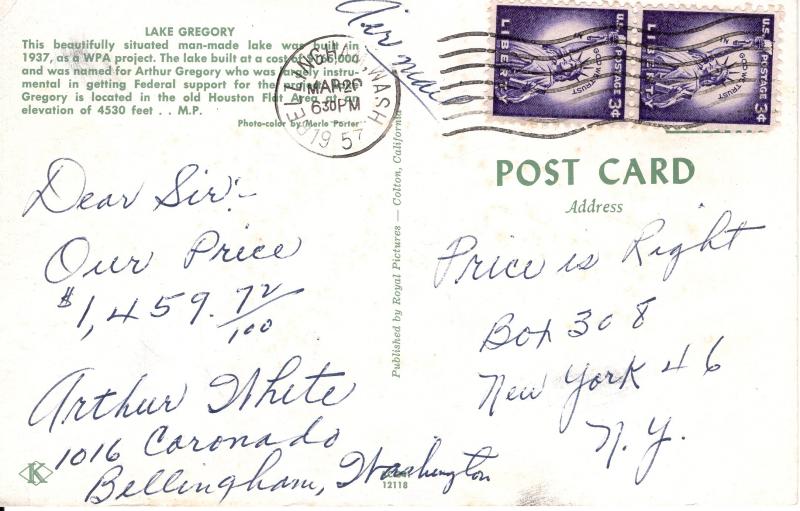 LAKE GREGORY
This beautifully situated man-made lake was built in
1937, as a WPA project. The lake built at a cost of
and was named for Arthur Gregory who was instru-
mental in getting Federal support for the
Gregory is located in the old Houston Flat Area
elevation of 4530 feet . . M.P.
Photo-color by Merle Porter
Air mail
BELLINGHAM, WASH.
MAR 20
630 PM
1957
U.S. POSTAGE
IN GOD WE TRUST
LIBERTY
3¢
U.S. POSTAGE
IN GOD WE TRUST
LIBERTY
3¢
Dear Sir:-
Our Price
$1,459.72/100
Arthur White
1016 Coronado
Bellingham, Washington
K
Published by Royal Pictures — Colton, California
12118
POST CARD
Address
Price is Right
Box 308
New York 46
N.Y.